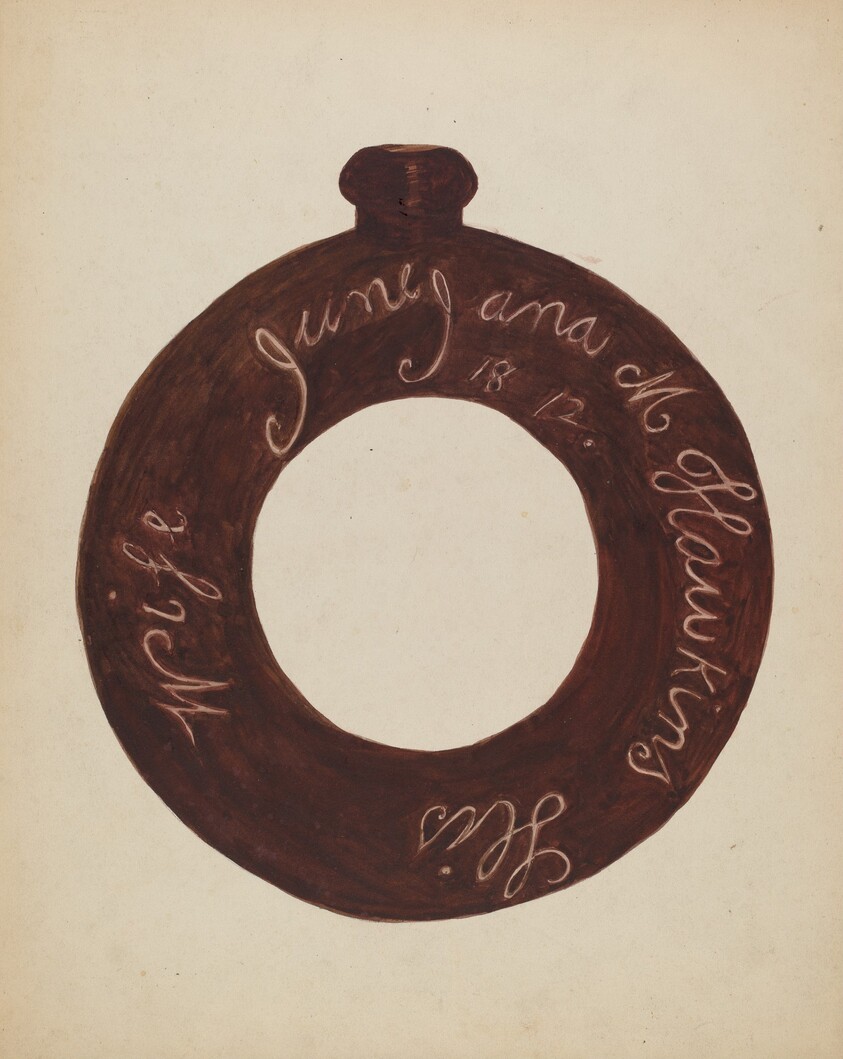 June Jana M Hawkins His Wife
18 12.